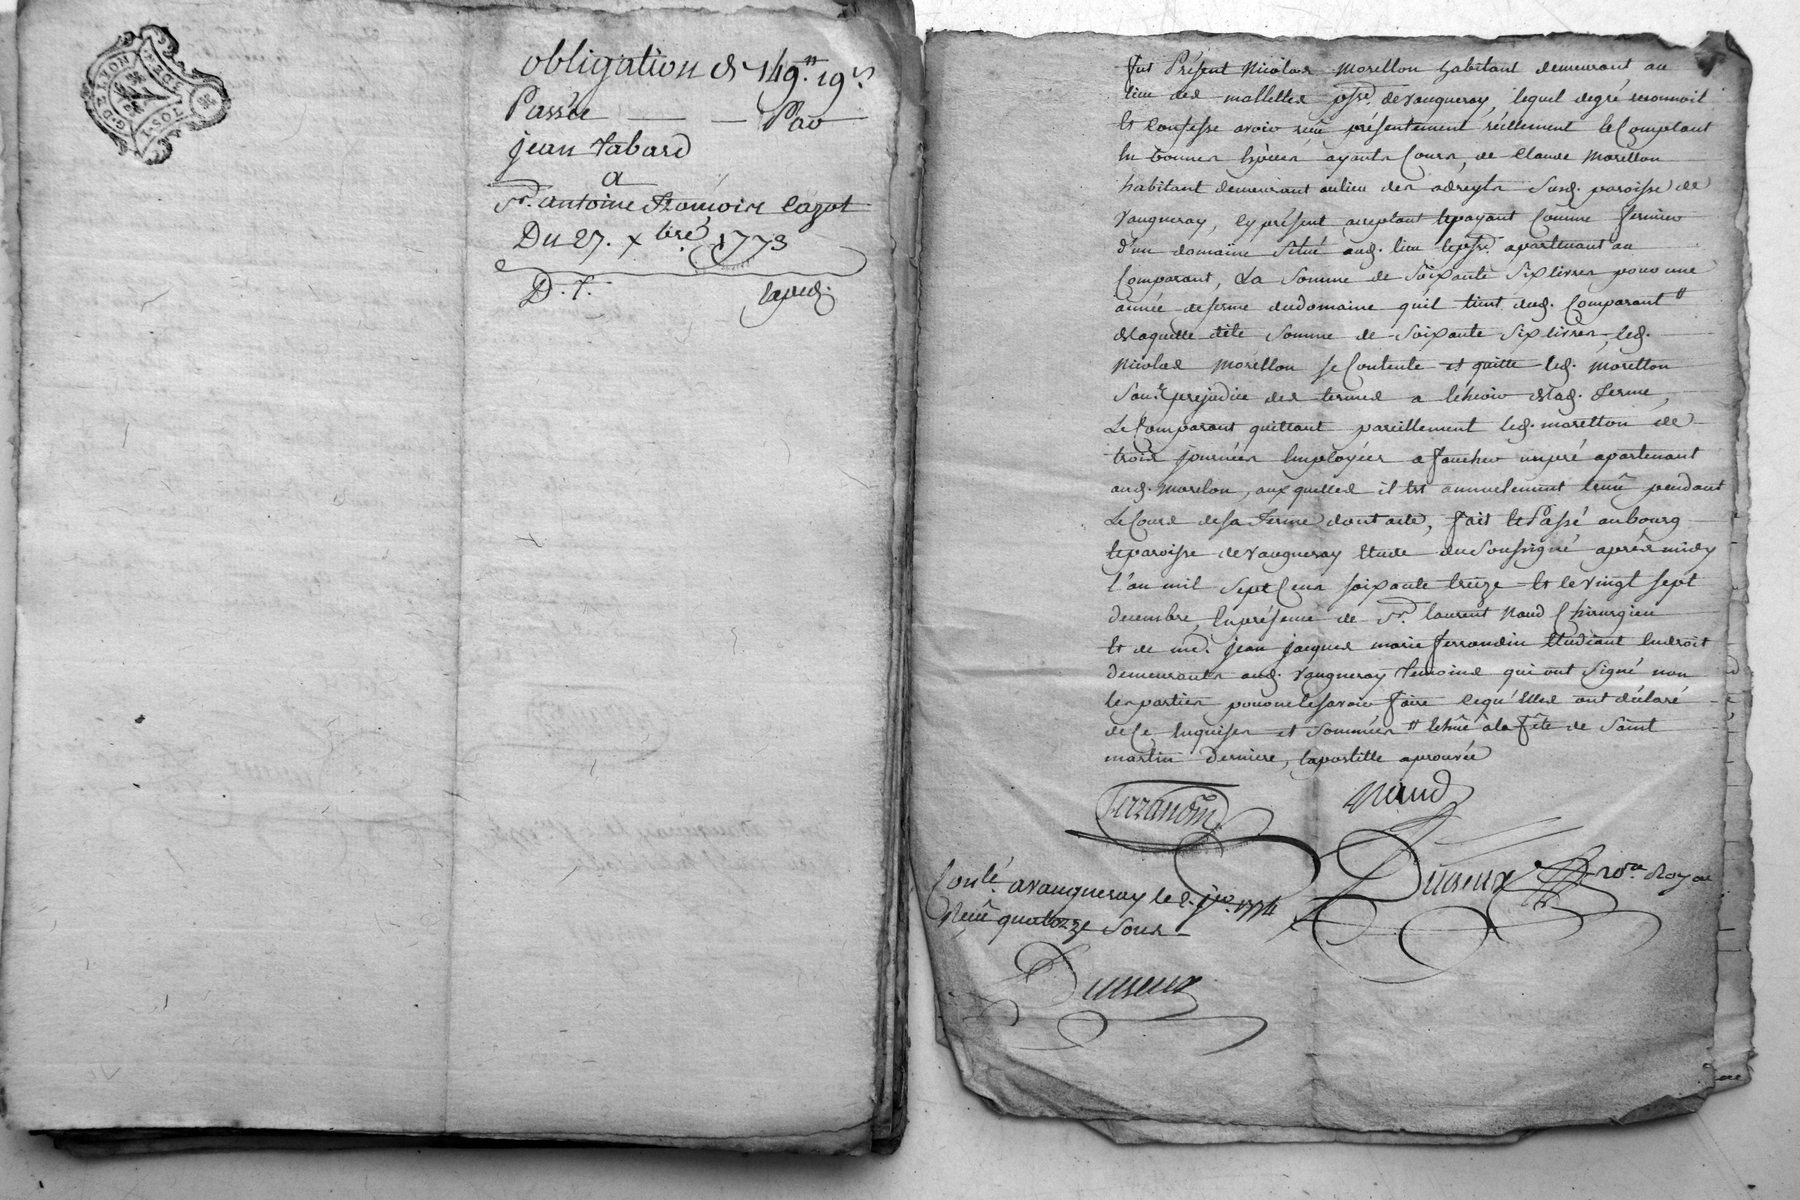 G. DE LYON
DEN
TOS.T
obligation de 149.₶ 19.s
Passée — — Par
jean tabard
a
Sr. antoine françois cazot
Du 27. xbre. 1773
D. f. exped.
fut Présent Nicolas Morellon habitant demeurant au
lieu des mallettes psse. de vaugneray, lequel degré reconnoit
Et Confesse avoir reçu présentement réellement le Comptant
En bonnes Espèces ayants Cours, de Claude Morellon
habitant demeurant au lieu des adreyts susd. paroisse de
vaugneray, cy présent aceptant et payant Comme fermier
d'un domaine Situé aud. lieu et psse. apartenant au
Comparant, La Somme de Soixante Six livres pour une
année de ferme du domaine qu'il tient dud. Comparant #
de laquelle dite Somme de Soixante Six livres, led.
Nicolas Morellon se Contente et quitte led. Morellon
Sans préjudice des termes a Echeoir de lad. ferme,
Le Comparant quittant pareillement led. morellon de
trois journées Employées a faucher un pré apartenant
aud. Morellon, aux quelles il Est annuelement tenu pendant
Le Cours de sa ferme dont acte, fait et Passé au bourg
et paroisse de vaugneray Etude du Soussigné après midy
l'an mil Sept Cens soixante treize Et le vingt sept
decembre, En présence de Sr. laurent Naud Chirurgien
Et de me. jean jacques marie ferrandin Etudiant En droit
demeurants aud. vaugneray temoins qui ont Signé non
les parties pour ne le savoir faire ce qu'Elles ont déclaré
de Ce Enquises et Sommées # Echüe à la fête de Saint
martin derniere, l'apostille aprouvée
ferrandin Naud
Duseux nore. Royal
Conlé. a vaugneray le 2. jer. 1774
Reçu quatorze Sous
Duseux